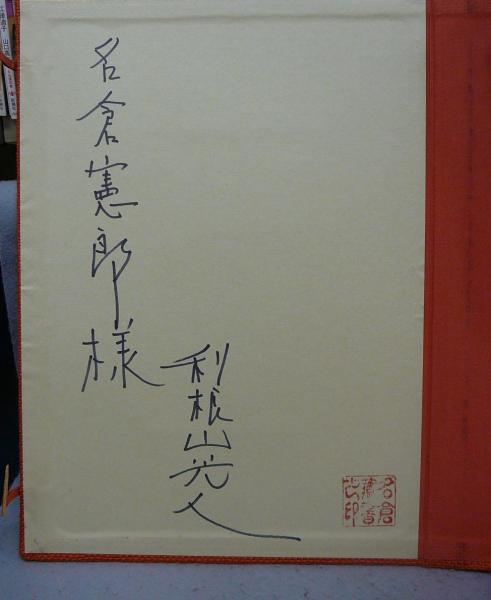 名倉憲郎様
利根山光人
名倉
蔵書
之印